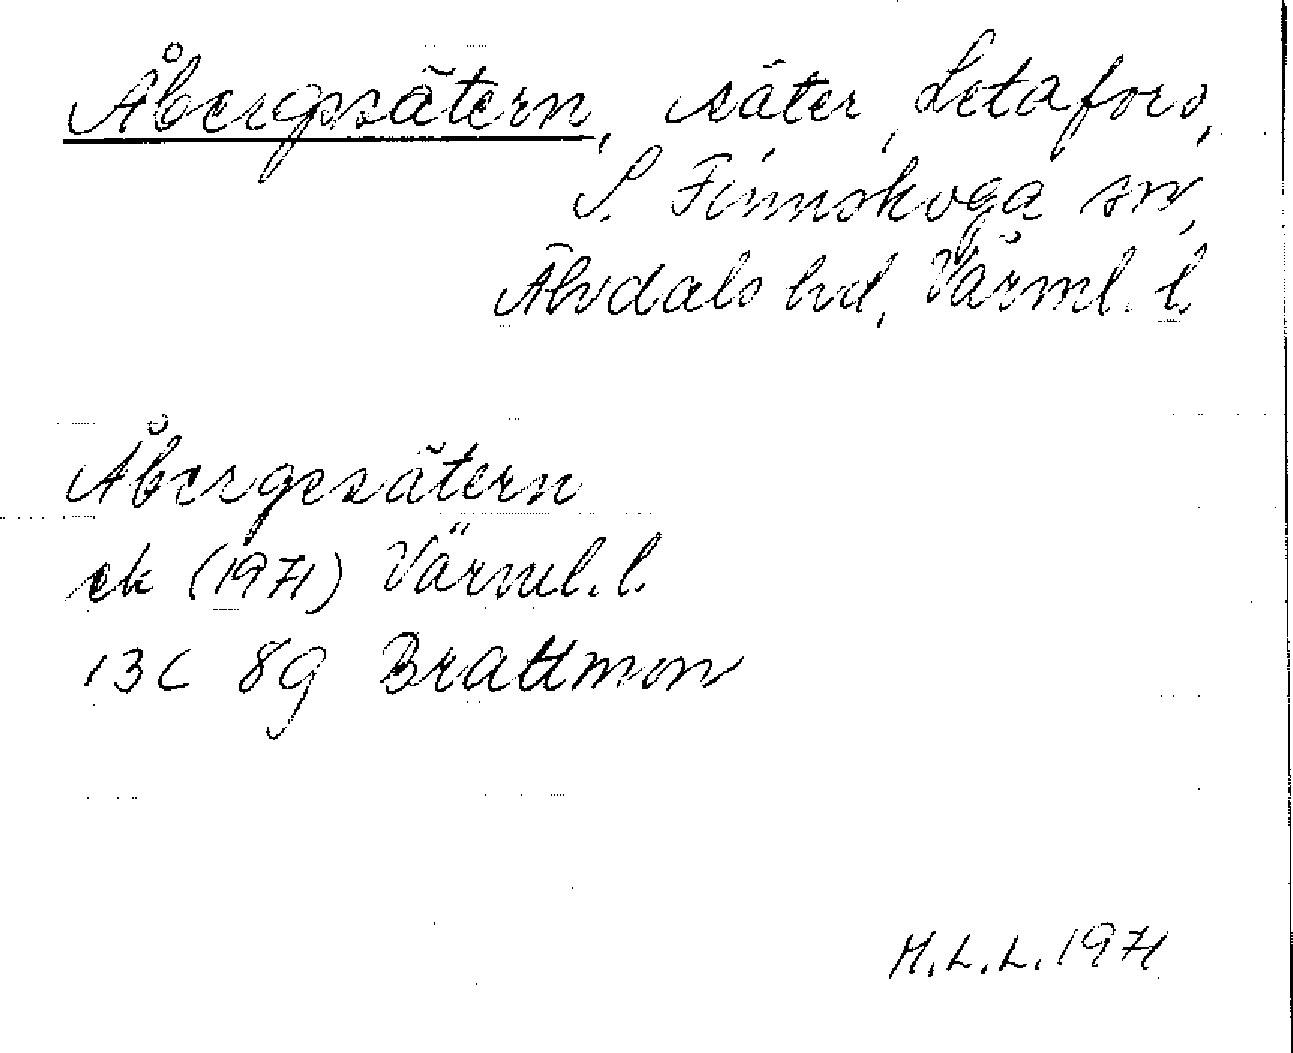 Åbergssätern, säter, Letafors,
S. Finnskoga sn,
Älvdals hd, Värml. l.
Åbergssätern
ek (1971) Värml. l.
13C 8g Brattmon
M.L.L. 1971